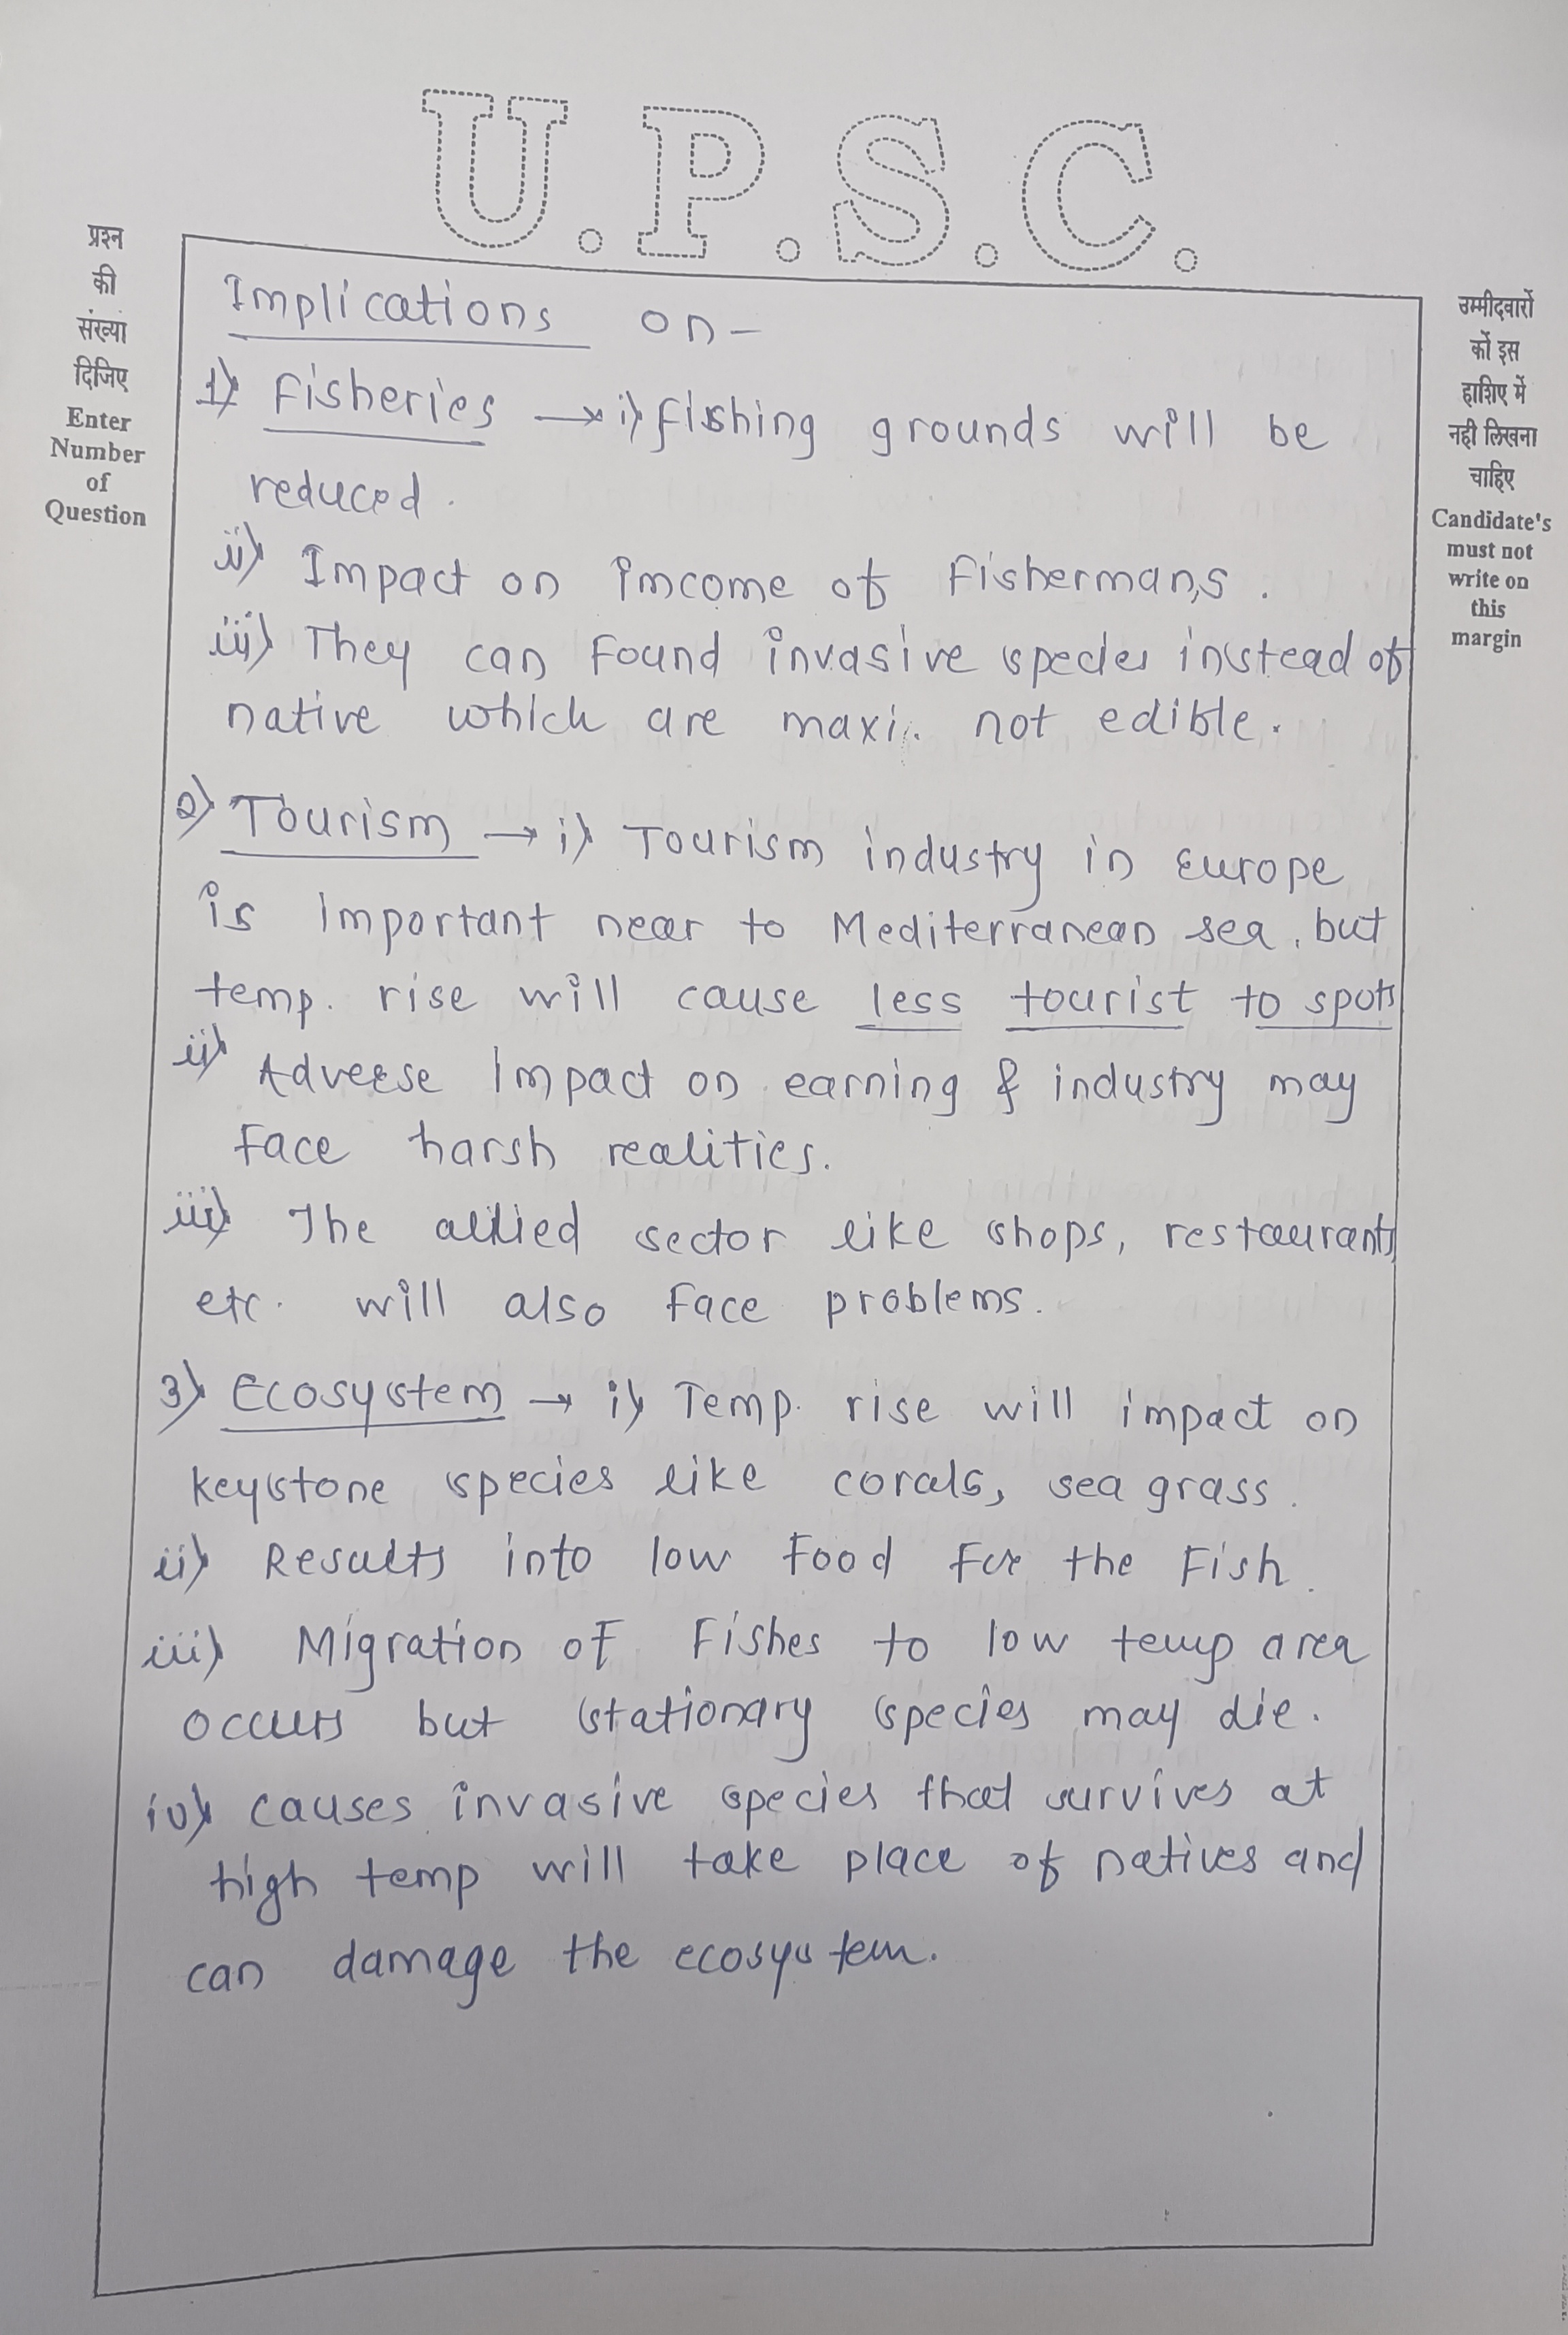 U.P.S.C.
प्रश्न
की
संख्या
दिजिए
Enter
Number
of
Question
उम्मीदवारों
कों इस
हाशिए में
नही लिखना
चाहिए
Candidate's
must not
write on
this
margin
Implications on-
1) Fisheries → i) fishing grounds will be
reduced.
ii) Impact on income of Fishermans.
iii) They can found invasive species instead of
native which are maxi. not edible.
2) Tourism → i) Tourism industry in Europe
is important near to Mediterranean sea, but
temp. rise will cause less tourist to spots
ii) Adverse Impact on earning & industry may
face harsh realities.
iii) The allied sector like shops, restaurants
etc. will also face problems.
3) Ecosystem → i) Temp. rise will impact on
keystone species like corals, sea grass.
ii) Results into low food for the Fish.
iii) Migration of Fishes to low temp area
occurs but stationary species may die.
iv) causes invasive species that survives at
high temp will take place of natives and
can damage the ecosystem.